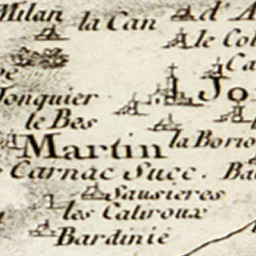 Milan
la Can
d'A
le Col
Ca
Jonquier
Jo
le Bes
la Borio
Martin
Carnac Succ.
Ba
Sausieres
les Caliroux
Bardinié